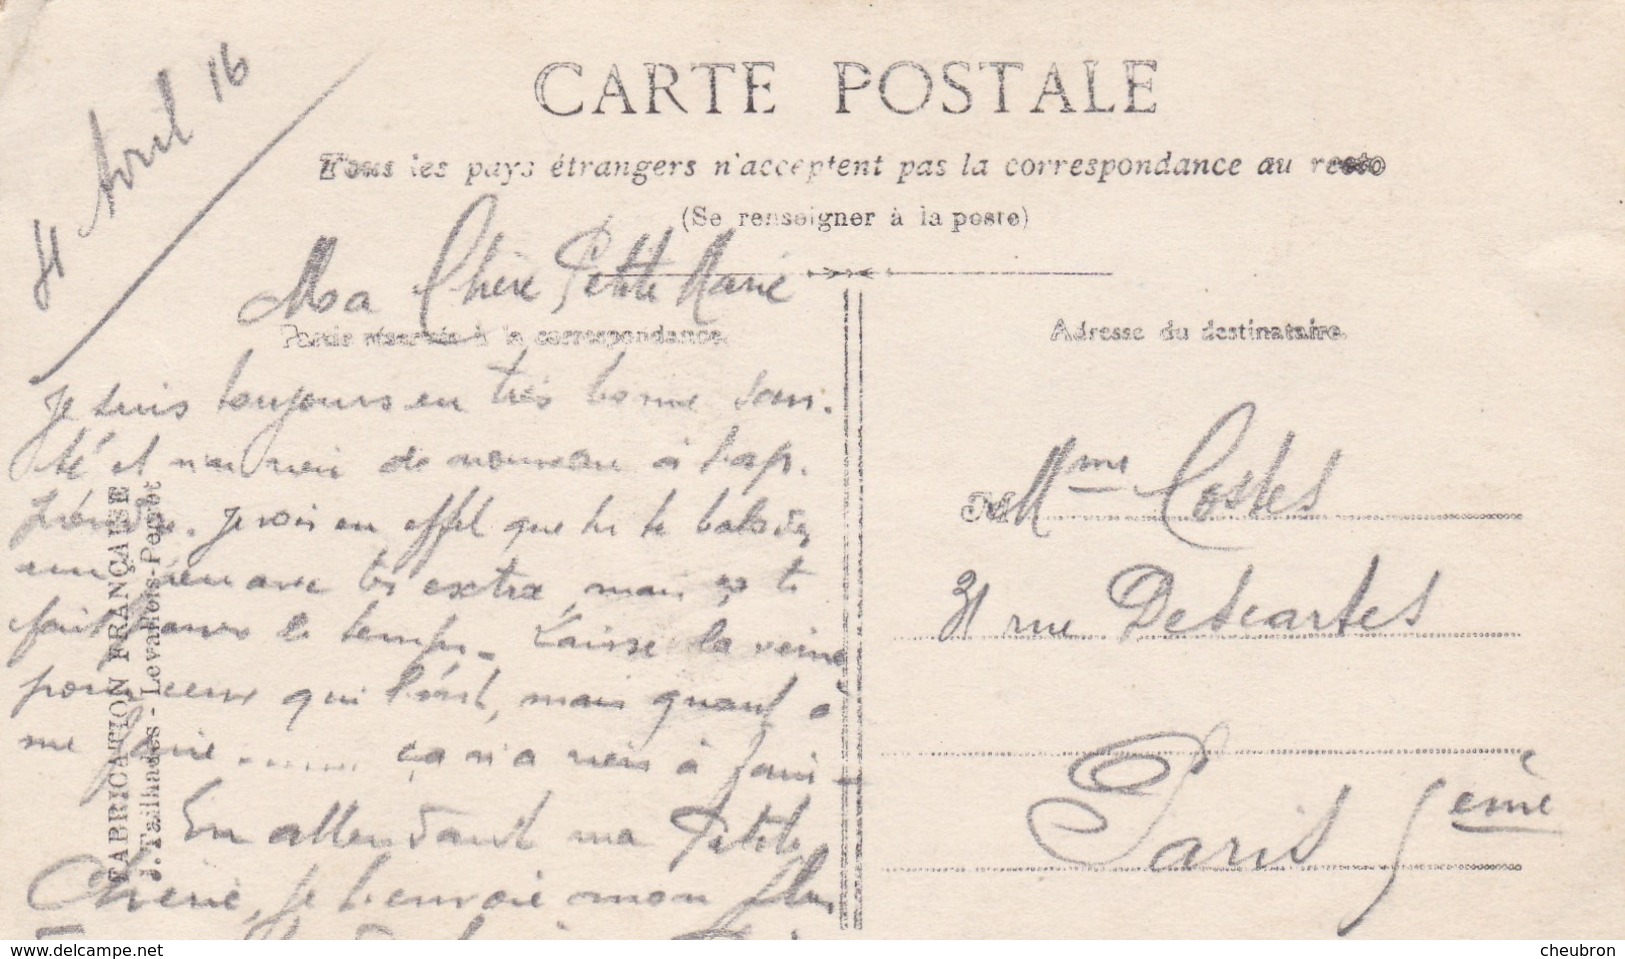 CARTE POSTALE
Tous les pays étrangers n'acceptent pas la correspondance au recto
(Se renseigner à la poste)
Avril 16
Ma Chère Petite Marie
Partie réservée à la correspondance.
Adresse du destinataire.
Je suis toujours en très bonne san-
té et n'ai rien de nouveau à t'ap-
prendre. Je vois en effet que tu te balades
un peu avec tes extra, mais ça te
fait passer le temps. Laisse la veine
pour ceux qui l'ont, mais quant à
me faire ....... ça n'a rien à fair-
En attendant ma Petite
Chérie, je t'envoie mon plus
M Mme Costes
31 rue Descartes
Paris 5ème
FABRICATION FRANÇAISE
J. Tailhades - Levallois-Perret
www.delcampe.net
cheubron